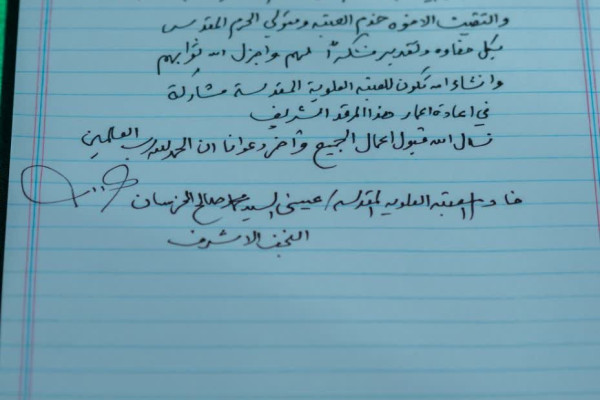 والتقيت الاخوة خدم العتبة ومتولي الحرم المقدس
بكل حفاوه وتقدير فشكراً لهم واجزل الله ثوابهم
وانشاء الله تكون للعتبة العلوية المقدسة مشاركة
في اعادة اعمار هذا المرقد الشريف
نسأل الله قبول اعمال الجميع وآخر دعوانا ان الحمد لله رب العلمين
خادم العتبه العلويه المقدسه / عيسى السيد محمد صالح الخرسان
النجف الاشرف